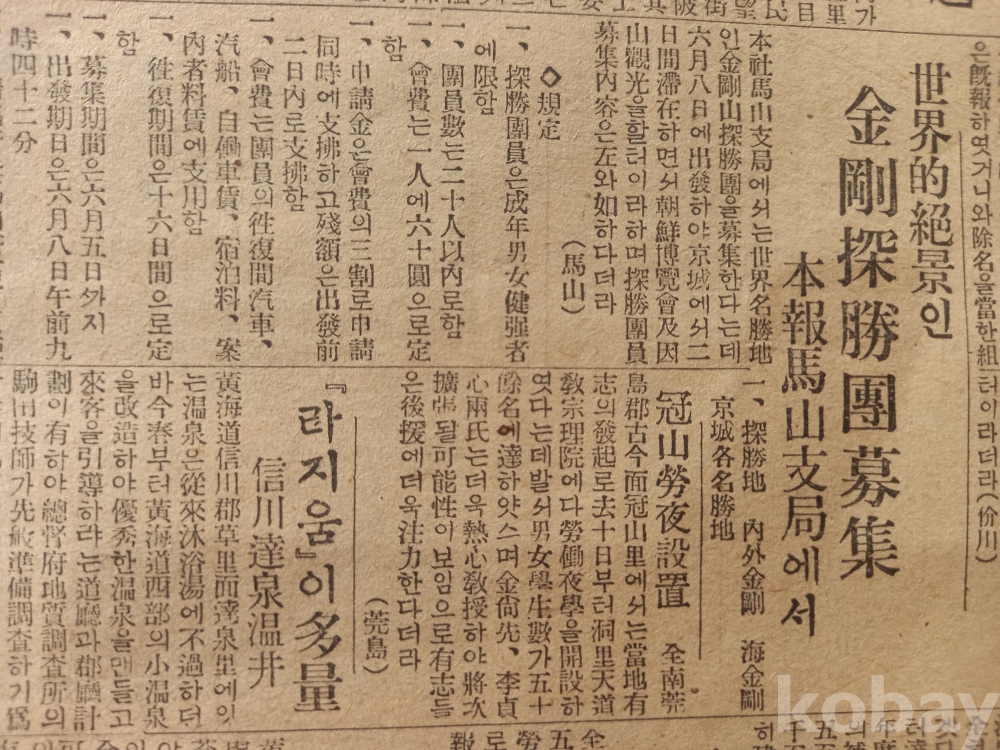 은旣報하엿거니와除名을當한組
터이라더라(价川)
世界的絕景인
金剛探勝團募集
本報馬山支局에서
本社馬山支局에서는世界名勝地
인金剛山探勝團을募集한다는데
六月八日에出發하야京城에서二
日間滯在하면서朝鮮博覽會及因
山觀光을할터이라하며探勝團員
募集內容은左와如하다더라
(馬山)
◇規定
一、探勝團員은成年男女健强者
에限함
一、團員數는二十人以內로함
一、會費는一人에六十圓으로定
함
一、申請金은會費의三割로申請
同時에支拂하고殘額은出發前
二日內로支拂함
一、會費는團員의徃復間汽車、
汽船、自働車賃、宿泊料、案
內者料賃에支用함
一、徃復期間은十六日間으로定
함
一、募集期間은六月五日싸지
一、出發期日은六月八日午前九
時四十二分
一、探勝地 內外金剛 海金剛
京城各名勝地
冠山勞夜設置
全南莞
島郡古今面冠山里에서는當地有
志의發起로去十日부터洞里天道
敎宗理院에다勞働夜學을開設하
엿다는데발서男女學生數가五十
餘名에達하얏스며金尙先、李貞
心兩氏는더욱熱心敎授하야將次
擴張될可能性이보임으로有志들
은後援에더욱注力한다더라
(莞島)
『라지움』이多量
信川達泉温井
黃海道信川郡草里面達泉里에잇
는温泉은從來沐浴湯에不過하던
바今春부터黃海道西部의小温泉
을改造하야優秀한温泉을맨들고
來客을引導하라는道廳과郡廳計
劃이有하야總督府地質調査所의
駒田技師가先般準備調査하기爲
kobay